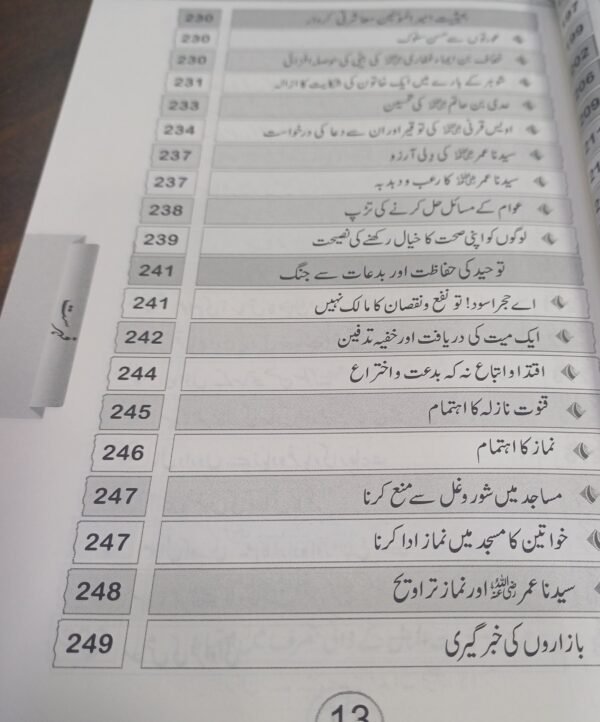 بحیثیت امیرالمؤمنین معاشرتی کردار 230
عورتوں سے حسن سلوک 230
خفاف بن ایماء غفاری رضی اللہ عنہ کی بیٹی کی حوصلہ افزائی 230
شوہر کے بارے میں ایک خاتون کی شکایت کا ازالہ 231
عدی بن حاتم رضی اللہ عنہ کی تحسین 233
اویس قرنی رحمہ اللہ کی توقیر اور ان سے دعا کی درخواست 234
سیدنا عمر رضی اللہ عنہ کی دلی آرزو 237
سیدنا عمر رضی اللہ عنہ کا رعب و دبدبہ 237
عوام کے مسائل حل کرنے کی تڑپ 238
لوگوں کو اپنی صحت کا خیال رکھنے کی نصیحت 239
توحید کی حفاظت اور بدعات سے جنگ 241
اے حجر اسود! تو نفع و نقصان کا مالک نہیں 241
ایک میت کی دریافت اور خفیہ تدفین 242
اقتدا و اتباع نہ کہ بدعت و اختراع 244
قنوت نازلہ کا اہتمام 245
نماز کا اہتمام 246
مساجد میں شور و غل سے منع کرنا 247
خواتین کا مسجد میں نماز ادا کرنا 247
سیدنا عمر رضی اللہ عنہ اور نماز تراویح 248
بازاروں کی خبر گیری 249
فہرست
13